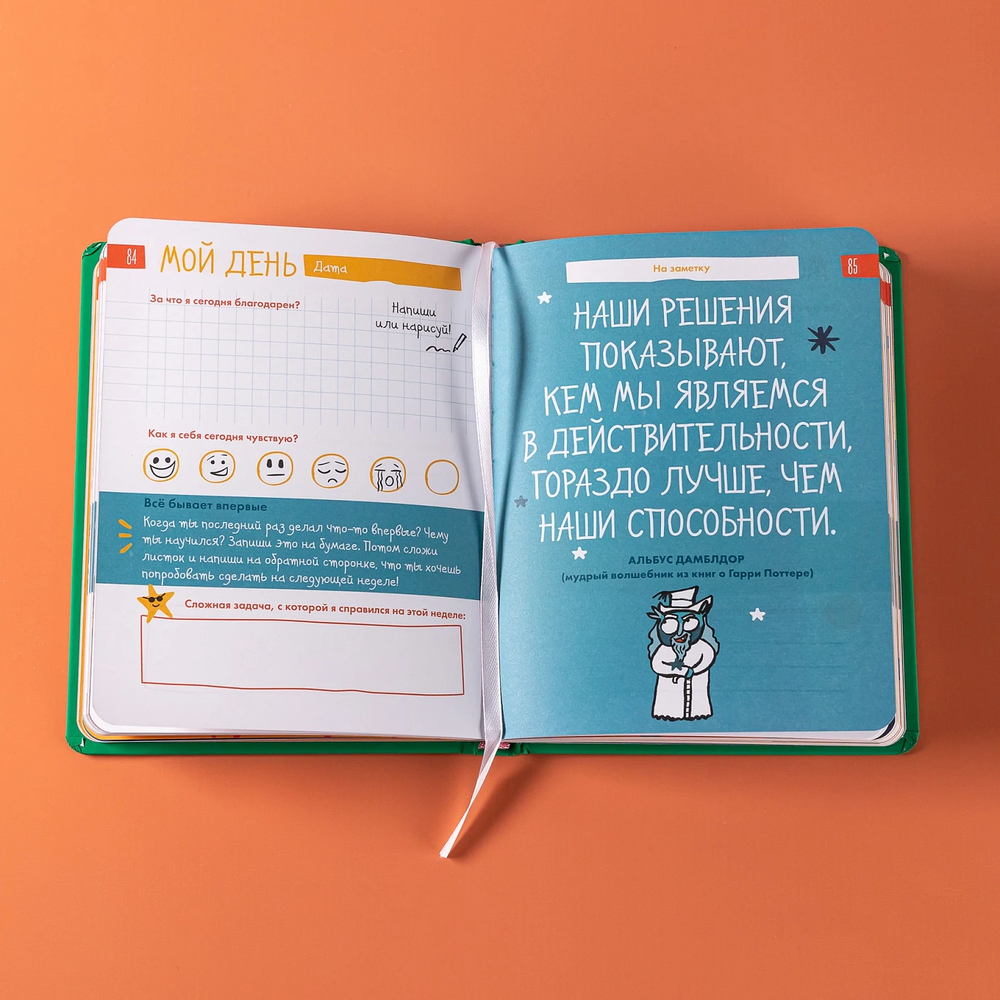 84
МОЙ ДЕНЬ
Дата
За что я сегодня благодарен?
Напиши
или нарисуй!
Как я себя сегодня чувствую?
Всё бывает впервые
Когда ты последний раз делал что-то впервые? Чему
ты научился? Запиши это на бумаге. Потом сложи
листок и напиши на обратной сторонке, что ты хочешь
попробовать сделать на следующей неделе!
Сложная задача, с которой я справился на этой неделе:
На заметку
85
НАШИ РЕШЕНИЯ
ПОКАЗЫВАЮТ,
КЕМ МЫ ЯВЛЯЕМСЯ
В ДЕЙСТВИТЕЛЬНОСТИ,
ГОРАЗДО ЛУЧШЕ, ЧЕМ
НАШИ СПОСОБНОСТИ.
АЛЬБУС ДАМБЛДОР
(мудрый волшебник из книг о Гарри Поттере)